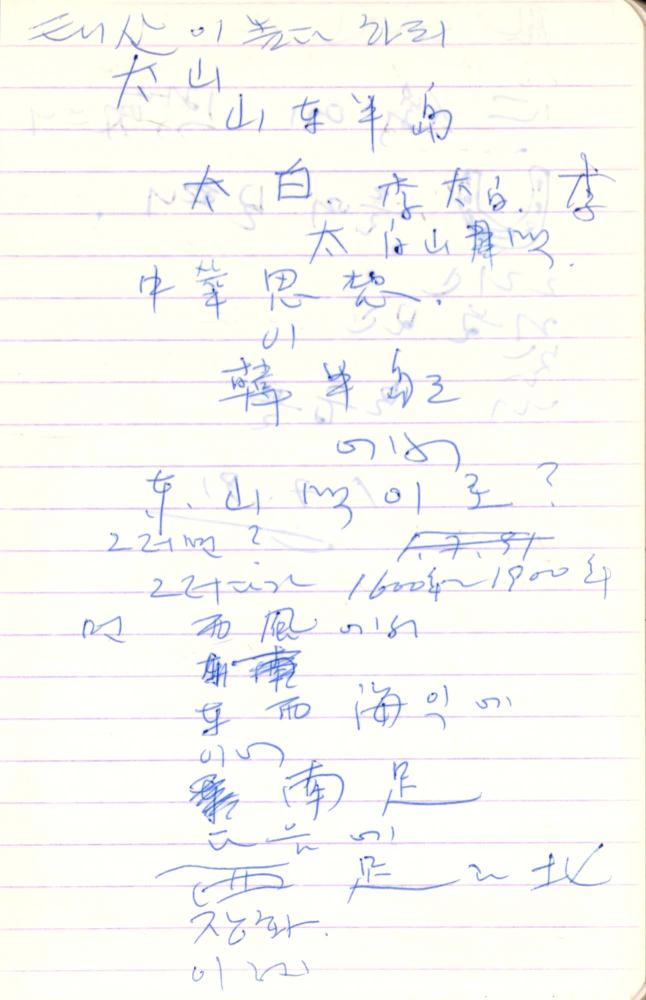 태산이 높다 하리
太山
山东半島
太白. 李太白. 李
太白山
中華思想.
이
韓半島로
에서
东. 山 이로?
그러면?
그러다가 1600年~1900年
면 西風에서
东西海 에
이어
南足
다음에
西足 北
장화.